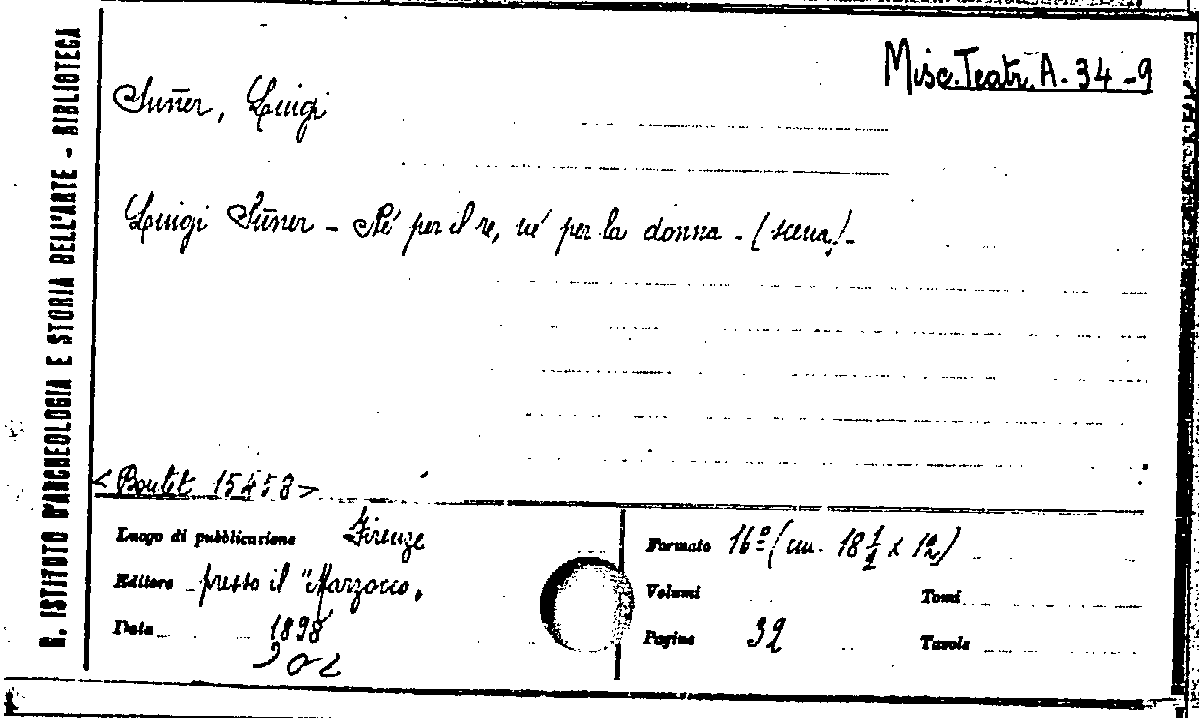 R. ISTITUTO D'ARCHEOLOGIA E STORIA DELL'ARTE - BIBLIOTECA
Misc. Teatr. A. 34 - 9
Suñer, Luigi
Luigi Suñer - Né per il re, né per la donna - (scena) -
<Boutet 15453>
Luogo di pubblicazione Firenze
Editore presso il "Marzocco"
Data 1898
902
Formato 16º (cm. 18 1/2 x 12)
Volumi
Tomi
Pagine 32
Tavole